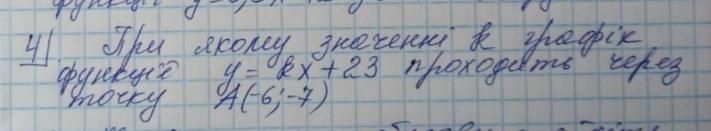 функції y=
4) При якому значенні k графік
функції y = kx + 23 проходить через
точку A(-6; -7)